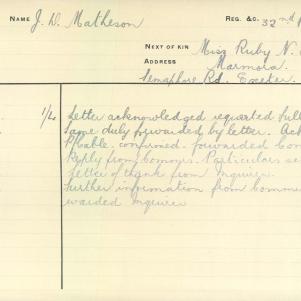 NAME J. W. Matheson REG. &c. 32nd
NEXT OF KIN Miss Ruby N.
ADDRESS Marmora.
Semaphore Rd. Exeter.
1/4 Letter acknowledged requested full
same duly forwarded by letter. Ack
P/Cable. confirmed. forwarded Com
Reply from Commrs. Particulars se
Letter of thanks from inquirer.
Further information from Comme
warded Inquirer